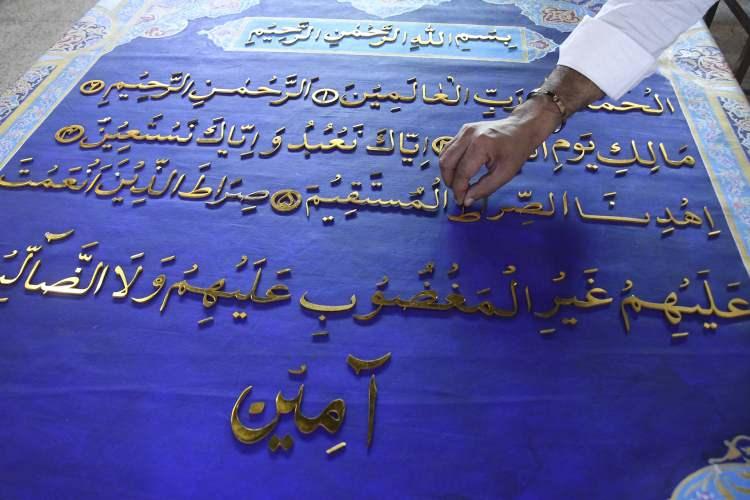 بِسْمِ اللهِ الرَّحْمٰنِ الرَّحِيْمِ
اَلْحَمْدُ رَبِّ الْعَالَمِيْنَ ١ اَلرَّحْمٰنِ الرَّحِيْمِ ٢
مَالِكِ يَوْمِ اِيَّاكَ نَعْبُدُ وَ اِيَّاكَ نَسْتَعِيْنُ ٤
اِهْدِنَــا الصِّرَاطَ الْمُسْتَقِيْمَ ٥ صِرَاطَ الَّذِيْنَ اَنْعَمْتَ
عَلَيْهِمْ غَيْرِ الْمَغْضُوْبِ عَلَيْهِمْ وَلَا الضَّآلِّيْ
آمِيْن